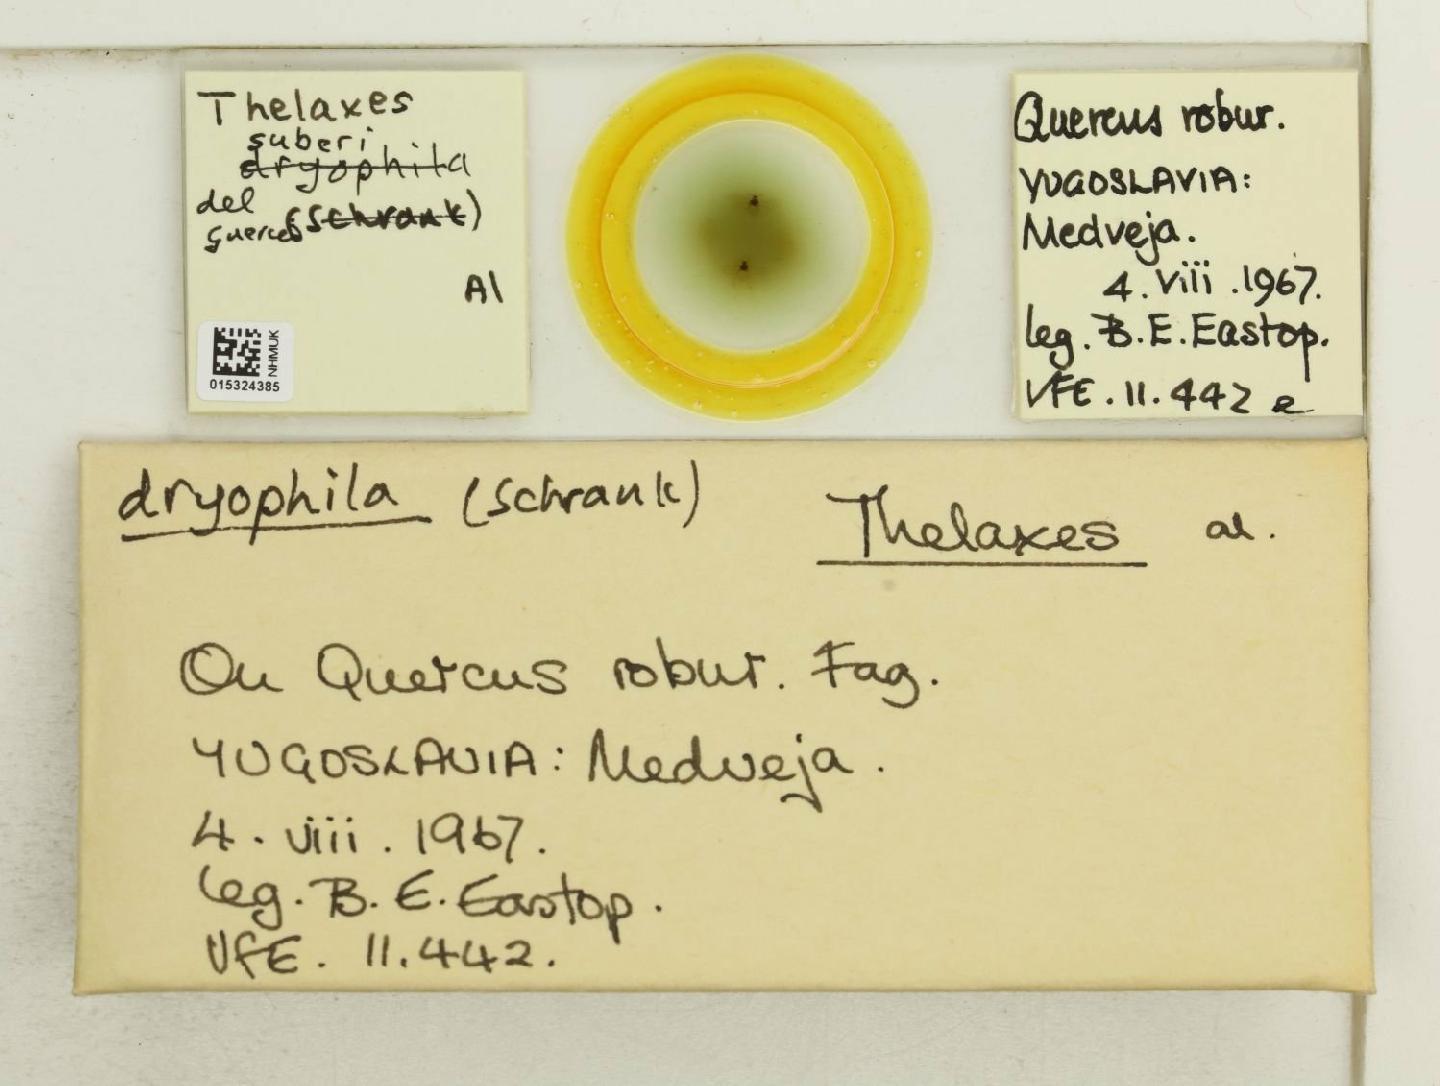 Thelaxes
suberi
dryophila
del
guercio (Schrank)
Al
NHMUK
015324385
Quercus robur.
YUGOSLAVIA:
Medveja.
4. viii .1967.
leg. B.E.Eastop.
VFE. 11. 442 e
dryophila (Schrank) Thelaxes al.
On Quercus robur. Fag.
YUGOSLAVIA: Medveja.
4. viii . 1967.
leg. B. E. Eastop.
VFE. 11.442.